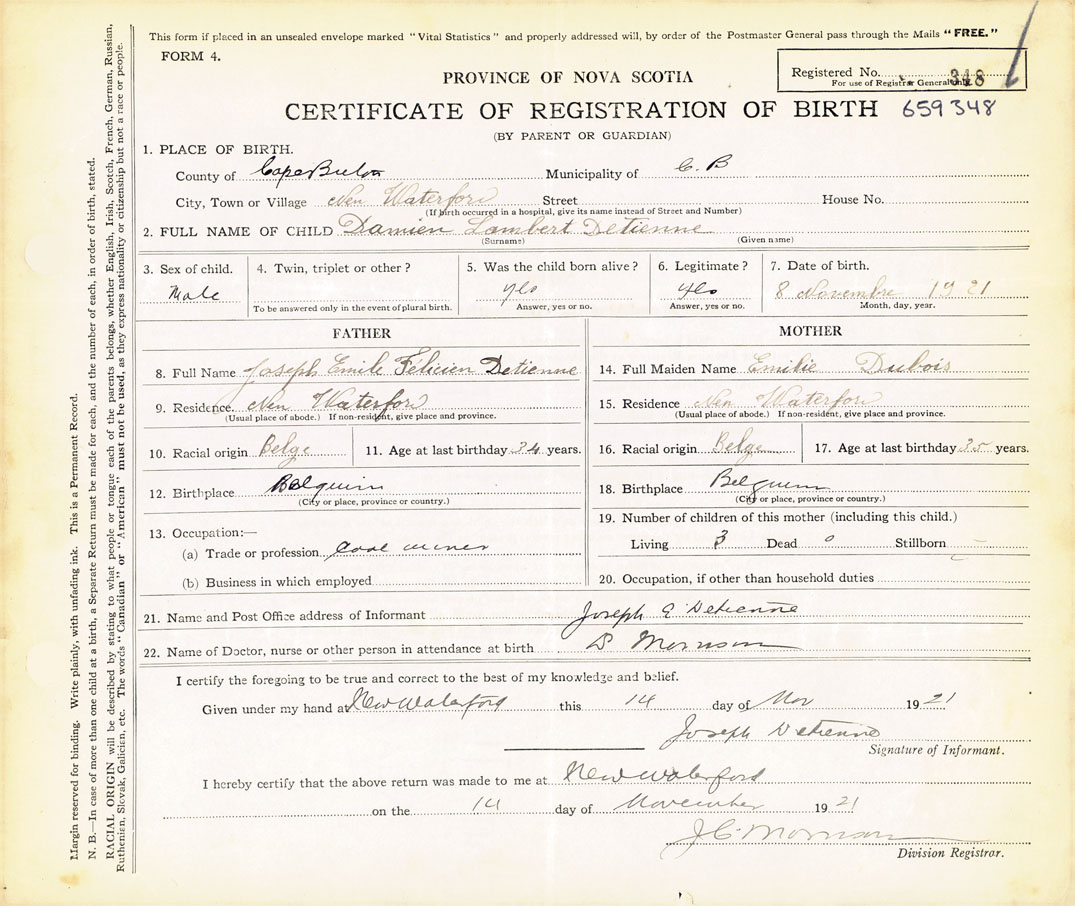 This form if placed in an unsealed envelope marked "Vital Statistics" and properly addressed will, by order of the Postmaster General pass through the Mails "FREE."
FORM 4.
Registered No. 348
For use of Registrar General only.
PROVINCE OF NOVA SCOTIA
CERTIFICATE OF REGISTRATION OF BIRTH 659348
(BY PARENT OR GUARDIAN)
1. PLACE OF BIRTH.
County of Cape Breton Municipality of C. B
City, Town or Village New Waterford Street House No.
(If birth occurred in a hospital, give its name instead of Street and Number)
2. FULL NAME OF CHILD Damien Lambert Detienne
(Surname) (Given name)
3. Sex of child. 4. Twin, triplet or other? 5. Was the child born alive? 6. Legitimate? 7. Date of birth.
Male yes yes 8 Novembre 1921
To be answered only in the event of plural birth. Answer, yes or no. Answer, yes or no. Month, day, year.
FATHER
8. Full Name Joseph Emile Félicien Detienne
9. Residence. New Waterford
(Usual place of abode.) If non-resident, give place and province.
10. Racial origin Belge 11. Age at last birthday 34 years.
12. Birthplace Belguim
(City or place, province or country.)
13. Occupation:—
(a) Trade or profession Coal miner
(b) Business in which employed
MOTHER
14. Full Maiden Name Emilie Dubois
15. Residence New Waterford
(Usual place of abode.) If non-resident, give place and province.
16. Racial origin Belge 17. Age at last birthday 35 years.
18. Birthplace Belguim
(City or place, province or country.)
19. Number of children of this mother (including this child.)
Living 3 Dead 0 Stillborn –
20. Occupation, if other than household duties
21. Name and Post Office address of Informant Joseph E Detienne
22. Name of Doctor, nurse or other person in attendance at birth D Morrison
I certify the foregoing to be true and correct to the best of my knowledge and belief.
Given under my hand at New Waterford this 14 day of Nov 1921
Joseph Detienne
Signature of Informant.
I hereby certify that the above return was made to me at New Waterford
on the 14 day of November 1921
J C Morrison
Division Registrar.
Margin reserved for binding. Write plainly, with unfading ink. This is a Permanent Record.
N. B.—In case of more than one child at a birth, a Separate Return must be made for each, and the number of each, in order of birth, stated.
RACIAL ORIGIN will be described by stating to what people or tongue each of the parents belongs, whether English, Irish, Scotch, French, German, Russian,
Ruthenian, Slovak, Galician, etc. The words "Canadian" or "American" must not be used, as they express nationality or citizenship but not a race or people.